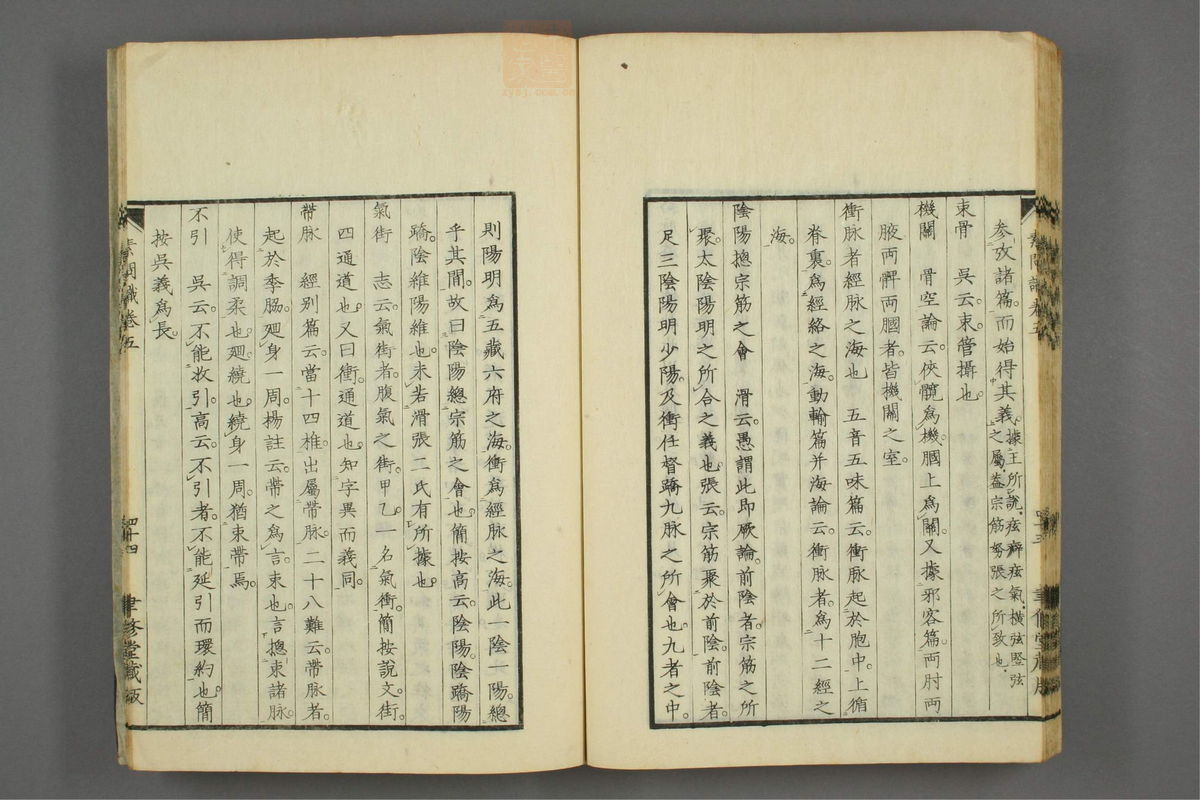 參攷諸篇。而始得其義。據王所說。痃癖痃氣。橫弦豎弦
之屬。蓋宗筋弩張之所致也。
束骨　吳云。束。管攝也。
機關　骨空論云。俠髖爲機。膕上爲關。又據邪客篇。兩肘兩
腋兩髀兩膕者。皆機關之室。
衝脉者經脉之海也　五音五味篇云。衝脈起於胞中。上循
脊裏。爲經絡之海。動輸篇并海論云。衝脉者。爲十二經之
海。
陰陽摠宗筋之會　滑云。愚謂此即厥論。前陰者宗筋之所
聚。太陰陽明之所合之義也。張云。宗筋聚於前陰。前陰者。
足三陰陽明少陽。及衝任督蹻九脈之所會也。九者之中。
素問識卷五
四十三
聿修堂藏版
則陽明爲五藏六府之海。衝爲經脈之海。此一陰一陽。總
乎其間。故曰陰陽總宗筋之會也。簡按高云。陰陽。陰蹻陽
蹻。陰維陽維也。未若滑張二氏有所據也。
氣街　志云。氣街者。腹氣之街。甲乙。一名氣衝。簡按說文。街。
四通道也。又曰衝。通道也。知字異而義同。
帶脉　經別篇云。當十四椎。出屬帶脈。二十八難云。帶脈者。
起於季脇。廻身一周。楊註云。帶之爲言。束也。言摠束諸脉。
使得調柔也。廻。繞也。繞身一周。猶束帶焉。
不引　吳云。不能收引。高云。不引者。不能延引而環約也。簡
按吳義爲長。
素問識卷五
四十四
聿修堂藏版
zysj.com.cn